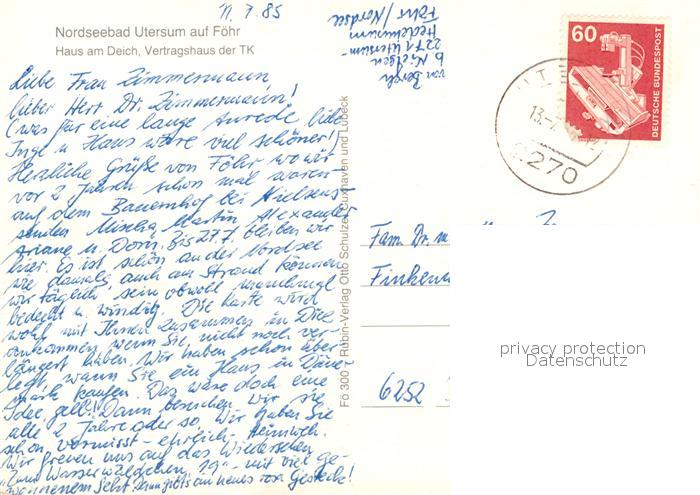 11.7.85
Nordseebad Utersum auf Föhr
Haus am Deich, Vertragshaus der TK
Liebe Frau Zimmermann
lieber Herr Dr. Zimmermann!
(was für eine lange Anrede, liebe
Inge u Hans wäre viel schöner!
Herzliche Grüße von Föhr wo wir
vor 2 Jahren schon mal waren
auf dem Bauernhof bei Nielsens
senden Mischa Martin Alexander
Ariane u. Doris. Bis 27.7. bleiben wir
hier. Es ist schön an der Nordsee
wie damals, auch am Strand können
wir täglich sein obwohl manchmal
bedeckt u. windig. Die Karte wird
wohl mit Ihnen zusammen in Diele
ankommen wenn Sie, nicht noch ver-
längert haben. Wir haben schon über-
legt, wann Sie ein Haus in Däne-
mark kaufen. Das wäre doch eine
Idee, gell! Dann besuchen wir sie
alle 2 Jahre oder so. Wir haben Sie
schon vermisst - ehrlich - Heimweh.
Wir freuen uns auf das Wiedersehen
"Zum Wasserwäldchen 19" - mit viel ge-
wonnenem Sekt. Dann gibts ein neues rosa Gesteck!
von
b. Nielsen
2271 Utersum-
Hedehusum
Föhr/Nordsee
60
DEUTSCHE BUNDESPOST
13.-7.
2270
Fö 300 Rubin-Verlag Otto Schulze, Cuxhaven und Lübeck
Fam. Dr. m
Finken
6252
privacy protection
Datenschutz